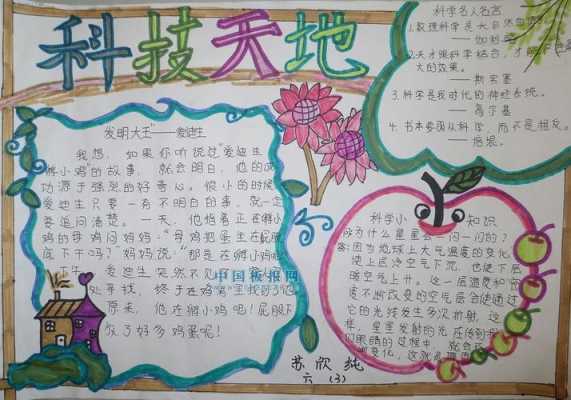 科技天地
发明大王"——爱迪生
我想，如果你听说过"爱迪生
孵小鸡"的故事，就会明白，他的成
功源于强烈的好奇心。很小的时候
爱迪生只要一有不明白的事，就一定
要追问清楚。一天，他指着正在孵小
鸡的母鸡问妈妈："母鸡把蛋坐在屁股
底下干吗？"妈妈说："那是在孵小鸡呢
爱迪生突然不见了
处寻找，终于在鸡窝里找到了他
原来，他在孵小鸡呢！屁股下
放了好多鸡蛋呢！
中国板报网
科学名人名言
1.数理科学是大自然
——伽利略
2.天才跟科学结合，才能
大的效果。
——斯宾塞
3.科学是我时代的神经系统。
——高尔基
4.书本要跟从科学，而不是相反。
——培根。
科学小知识
为什么星星会一闪一闪的？
答：因为地球上大气温度的变化
使上层冷空气下沉，也使下层
暖空气上升。这一层温度和密
度不断改变的空气层会使通过
它的光线发生多次折射，这
样，星星发射的光在传到
们眼睛的过程中，就会
变化，这就
苏欣纯
六（3）